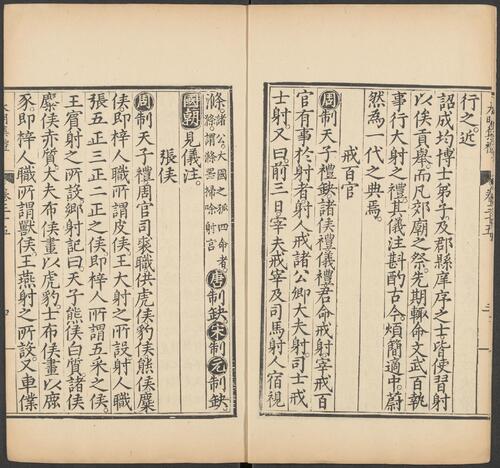 行之近
詔成均博士弟子及郡縣庠序之士皆使習射
以俟貢舉而凡郊廟之祭先期輒命文武百執
事行大射之禮其儀注斟酌古今煩簡適中蔚
然為一代之典焉
戒百官
周制天子禮缺諸侯禮儀禮君命戒射宰戒百
官有事於射者射人戒諸公卿大夫射司士戒
士射又曰前三日宰夫戒宰及司馬射人宿視
滌諸公大國之孤四命者滌謂滌器掃除射宮唐制缺宋制元制缺
國朝見儀注
張侯
周制天子禮周官司裘職供虎侯豹侯熊侯麋
侯即梓人職所謂皮侯王大射之所設射人職
張五正三正二正之侯即梓人所謂五采之侯
王賓射之所設鄉射記曰天子熊侯白質諸侯
麋侯赤質大夫布侯畫以虎豹士布侯畫以鹿
豕即梓人職所謂獸侯王燕射之所設又車僕